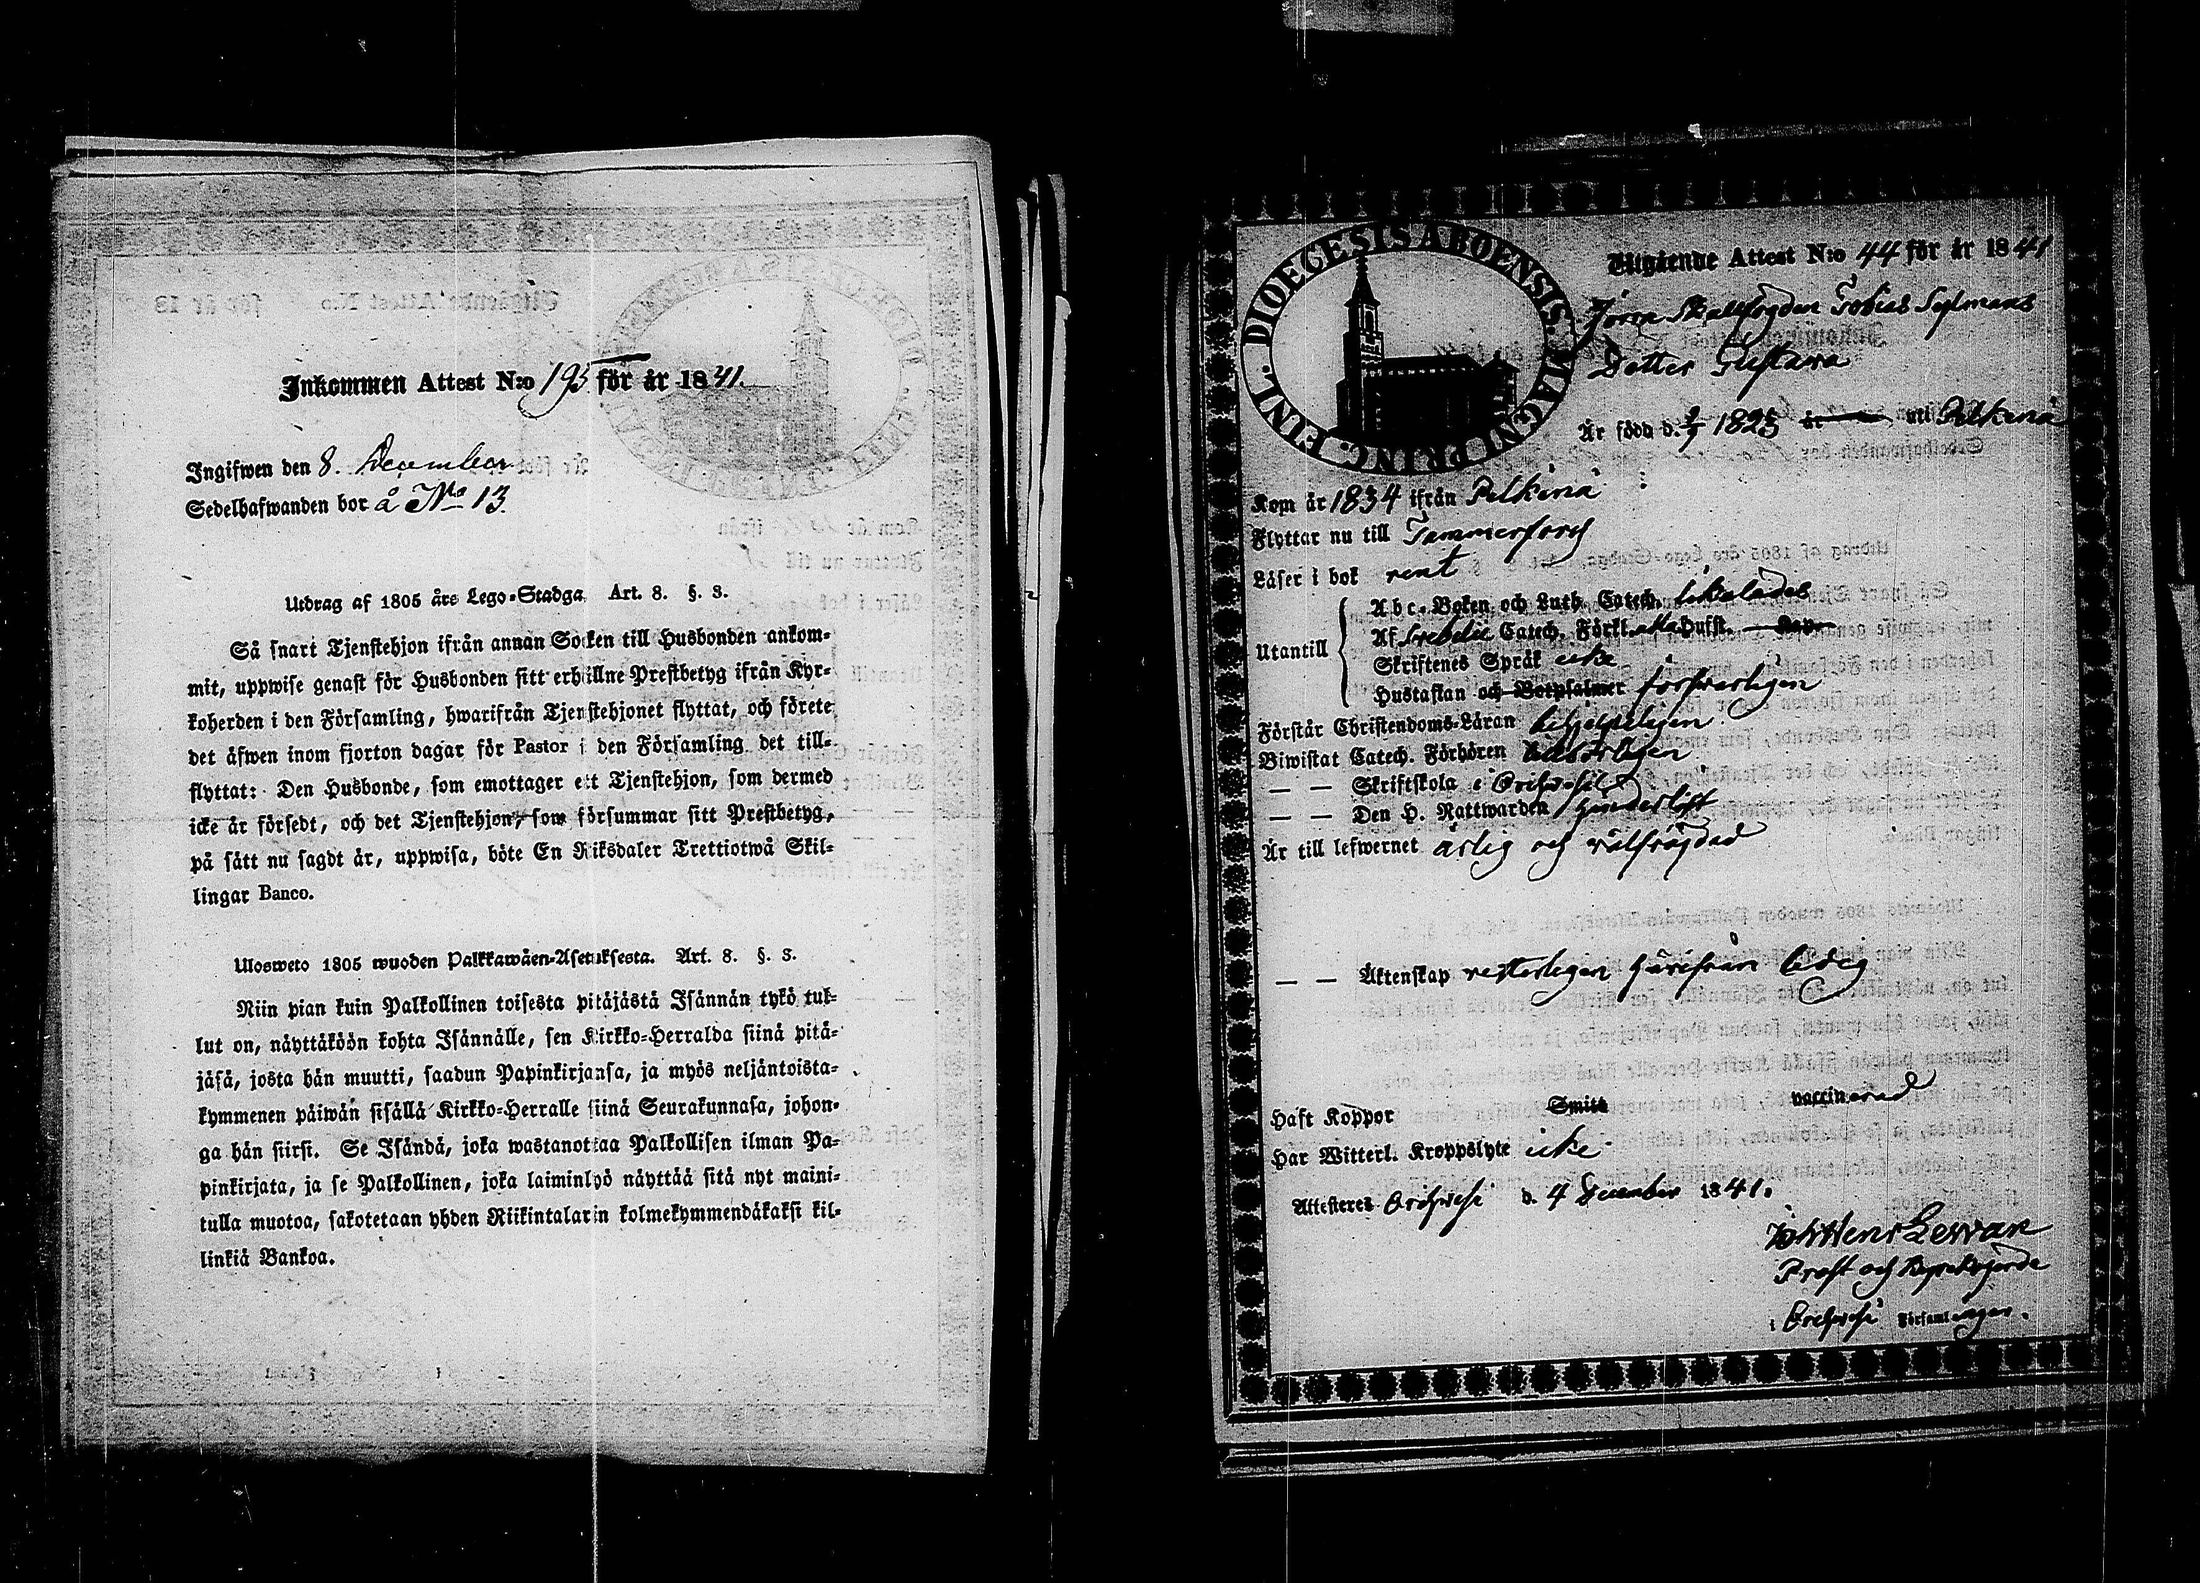 Inkommen Attest N:o 195 för år 1841.
Ingifwen den 8. December
Sedelhafwanden bor å No 13.
Utdrag af 1805 års Lego-Stadga, Art. 8. §. 3.
Så snart Tjenstehjon ifrån annan Socken till Husbonden ankom-
mit, uppwise genast för Husbonden sitt erhållne Prestbetyg ifrån Kyr-
koherden i den Församling, hwarifrån Tjenstehjonet flyttat, och förete
det äfwen inom fjorton dagar för Pastor i den Församling det till-
flyttat: Den Husbonde, som emottager ett Tjenstehjon, som dermed
icke är försedt, och det Tjenstehjon, som försummar sitt Prestbetyg,
på sätt nu sagdt är, uppwisa, böte En Riksdaler Trettiotwå Skil-
lingar Banco.
Ulosweto 1805 wuoden Palkkawäen-Asetuksesta. Art. 8. §. 3.
Niin pian kuin Palkollinen toisesta pitäjästä Isännän tykö tul-
lut on, näyttäköön kohta Isännälle, sen Kirkko-Herralda siinä pitä-
jäsä, josta hän muutti, saadun Papinkirjansa, ja myös neljäntoista-
kymmenen päiwän sisällä Kirkko-Herralle siinä Seurakunnasa, johon-
ga hän siirsi. Se Isändä, joka wastanottaa Palkollisen ilman Pa-
pinkirjata, ja se Palkollinen, joka laiminlyö näyttää sitä nyt maini-
tulla muotoa, sakotetaan yhden Riikintalarin kolmekymmendäkaksi kil-
linkiä Bankoa.
DIOECESIS ABOENSIS. MAGNI PRINC. FINL.
Utgående Attest N:o 44 för år 1841
Förra Skallfogden Tobias Sylmans
Dotter Gustava
Är född d. 1825 år uti Pelkenä
Kom år 1834 ifrån Pelkenä
Flyttar nu till Tammerfors
Läser i bok rent
Utantill
Abc-Boken och Luth. Catech.
Af Svebelii Catech. Förkl. alla Hufst.
Skriftenes Språk icke
Hustaflan och Botpsalmer försvarligen
Förstår Christendoms-Läran hjelpeligen
Biwistat Catech. Förhören
— — Skriftskola i Orihvesi
— — Den H. Nattwarden
Är till lefwernet ärlig och välfrägdad
— — Äktenskap härifrån ledig
Haft Koppor Smitt vaccinerad
Har Witterl. Kroppslyte icke
Attesteres Orihvesi d. 4 December 1841.
Joh Henr Lewan
Prost och Kyrkoherde
i Orihvesi Församlingar.